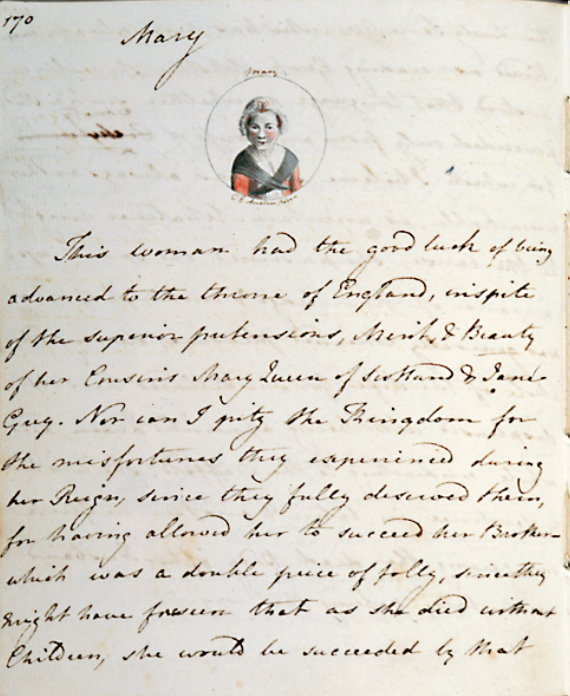 170
Mary
Mary
C E Austen pinx
This woman had the good luck of being
advanced to the throne of England, inspite
of the superior pretensions, Merit, & Beauty
of her Cousins Mary Queen of Scotland & Jane
Grey. Nor can I pity the Kingdom for
the misfortunes they experienced during
her Reign, since they fully deserved them,
for having allowed her to succeed her Brother—
which was a double peice of folly, since they
might have foreseen that as she died without
Children, she would be succeeded by that